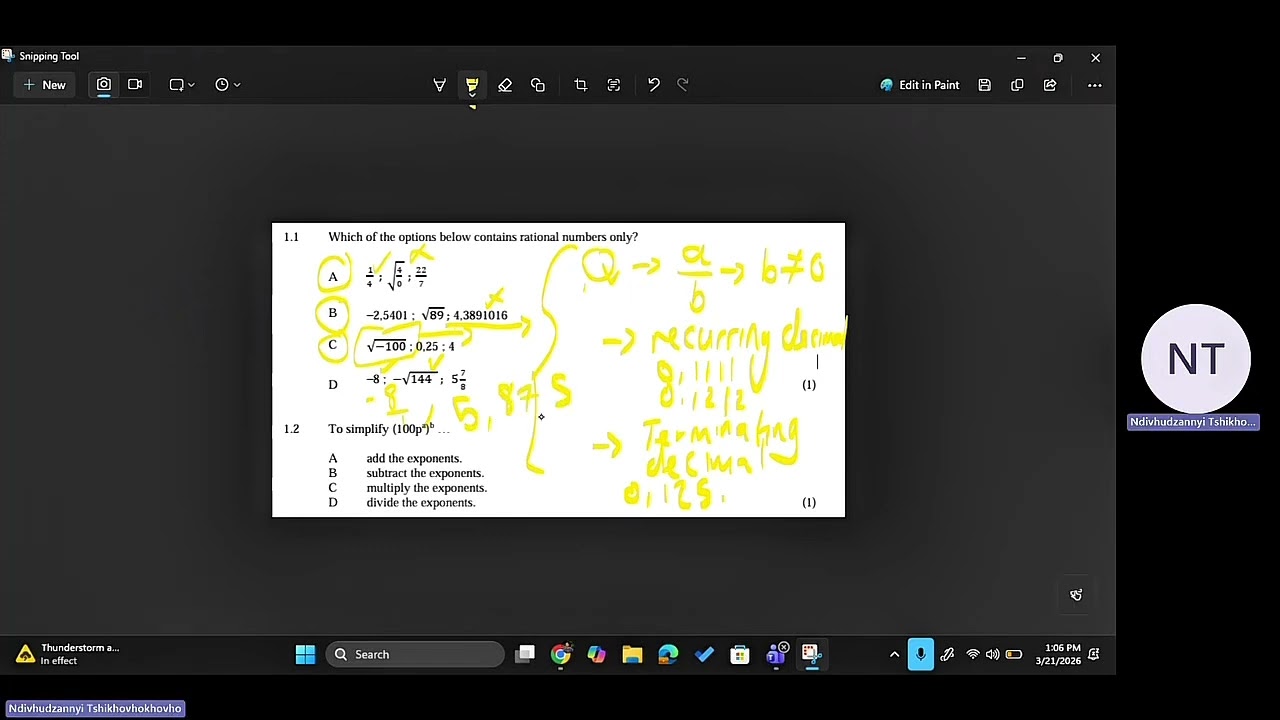 Snipping Tool
New
Edit in Paint
1.1 Which of the options below contains rational numbers only?
A 1/4 ; √4/0 ; 22/7
B −2,5401 ; √89 ; 4,3891016
C √−100 ; 0,25 ; 4
D −8 ; −√144 ; 5 7/8 (1)
-8/1 , 5,875
Q → a/b → b≠0
→ recurring decimal
0,1111
0,1212
→ Terminating
decimal
0,125.
1.2 To simplify (100pᵃ)ᵇ …
A add the exponents.
B subtract the exponents.
C multiply the exponents.
D divide the exponents. (1)
NT
Ndivhudzannyi Tshikho...
Thunderstorm a...
In effect
Search
1:06 PM
3/21/2026
Ndivhudzannyi Tshikhovhokhovho